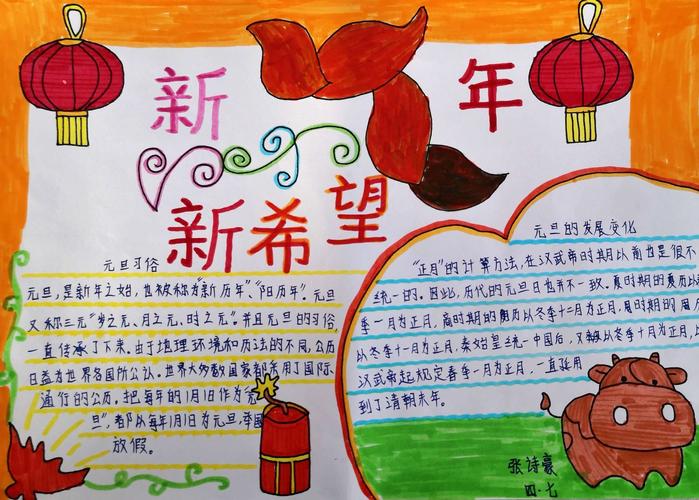 新年
新希望
元旦习俗
元旦，是新年之始，也被称为"新历年"、"阳历年"。元旦
又称三元"岁之元、月之元、时之元"。并且元旦的习俗
一直传承了下来。由于地理环境和历法的不同，公历
日益为世界各国所公认。世界大多数国家都采用了国际
通行的公历。把每年的1月1日作为"元
旦"，都从每年1月1日为元旦，举国
放假。
元旦的发展变化
"正月"的计算方法，在汉武帝时期以前也是很不
统一的。因此，历代的元旦日也并不一致。夏时期的夏历以
季一月为正月，商时期的历以冬季十二月为正月，周时期的周
从冬季十一月为正月，秦始皇统一中国后，又以冬季十月为正月，
汉武帝起规定春季一月为正月，一直延用
到了清朝末年。
张诗豪
四·七